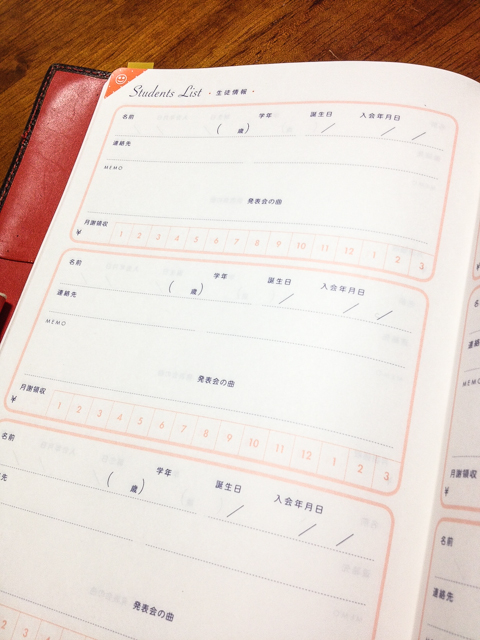 Students List ・生徒情報・
名前 ( 歳) 学年 誕生日 / 入会年月日 / /
連絡先
MEMO
発表会の曲
月謝領収
¥ 1 2 3 4 5 6 7 8 9 10 11 12 1 2 3
名前 ( 歳) 学年 誕生日 / 入会年月日 / /
連絡先
MEMO
発表会の曲
月謝領収
¥ 1 2 3 4 5 6 7 8 9 10 11 12 1 2 3
名前 ( 歳) 学年 誕生日 / 入会年月日 / /
先
発表会の曲
2 3 4 5 6 7
名
連絡
MEMO
月謝領収
¥
名前
連絡先
MEMO